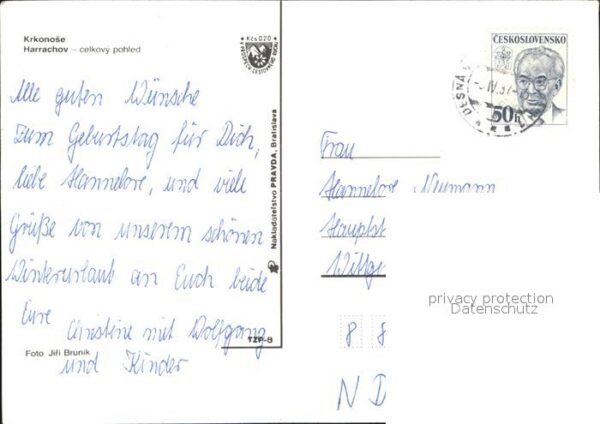 Krkonoše
Harrachov – celkový pohled
Kčs 0,20
Alle guten Wünsche
zum Geburtstag für Dich,
liebe Hannelore, und viele
Grüße von unserem schönen
Winterurlaub an Euch beide
Eure Christine mit Wolfgang
und Kinder
Foto Jiří Bruník
TZP-B
Nakladatelstvo PRAVDA, Bratislava
ČESKOSLOVENSKO
50h
DESNÁ
Frau
Hannelore Neumann
Hauptst
Wittg
8 8
N D
privacy protection
Datenschutz